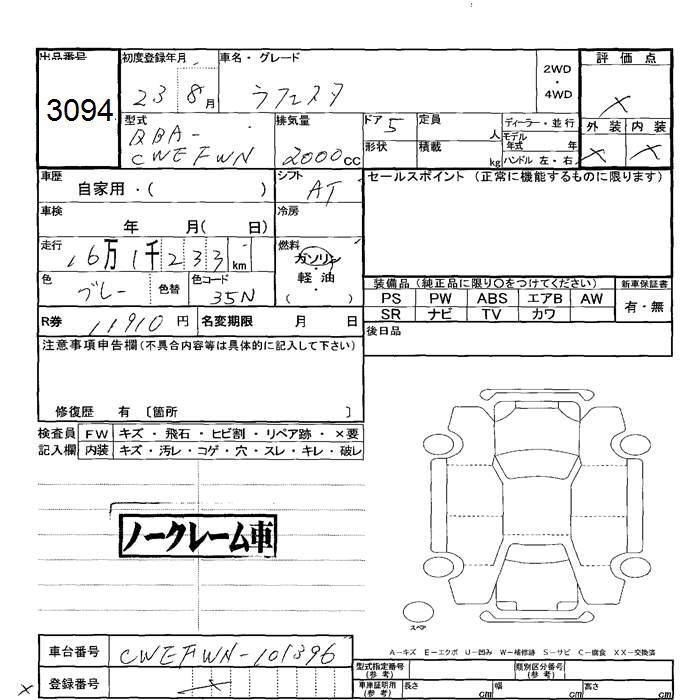 出品番号 初度登録年月 車名・グレード 評価点
3094 23 8月 ラフェスタ 2WD・4WD ×
型式 排気量 ドア 定員 ディーラー・並行 外装 内装
QBA-CWEFWN 2000cc 5 人 モデル年式 年 × ×
形状 積載 kg ハンドル 左・右
車歴 シフト セールスポイント (正常に機能するものに限ります)
自家用・( ) AT
車検 冷房
年 月( 日)
走行 燃料
16万1千233km ガソリン
軽・油
( )
色 グレー 色替 色コード 35N
装備品(純正品に限り○をつけてください) 新車保証書
PS PW ABS エアB AW 有・無
SR ナビ TV カワ
R券 11910円 名変期限 月 日
後日品
注意事項申告欄(不具合内容等は具体的に記入して下さい)
修復歴 有 〔箇所 〕
検査員 FW キズ・飛石・ヒビ割・リペア跡・×要
記入欄 内装 キズ・汚レ・コゲ・穴・スレ・キレ・破レ
ノークレーム車
スペア
A-キズ E-エクボ U-凹み W-補修跡 S-サビ C-腐食 XX-交換済
車台番号 CWEFWN-101396
型式指定番号(参考) 類別区分番号(参考)
× 登録番号 ×
車庫証明用(参考) 長さ cm 幅 cm 高さ cm